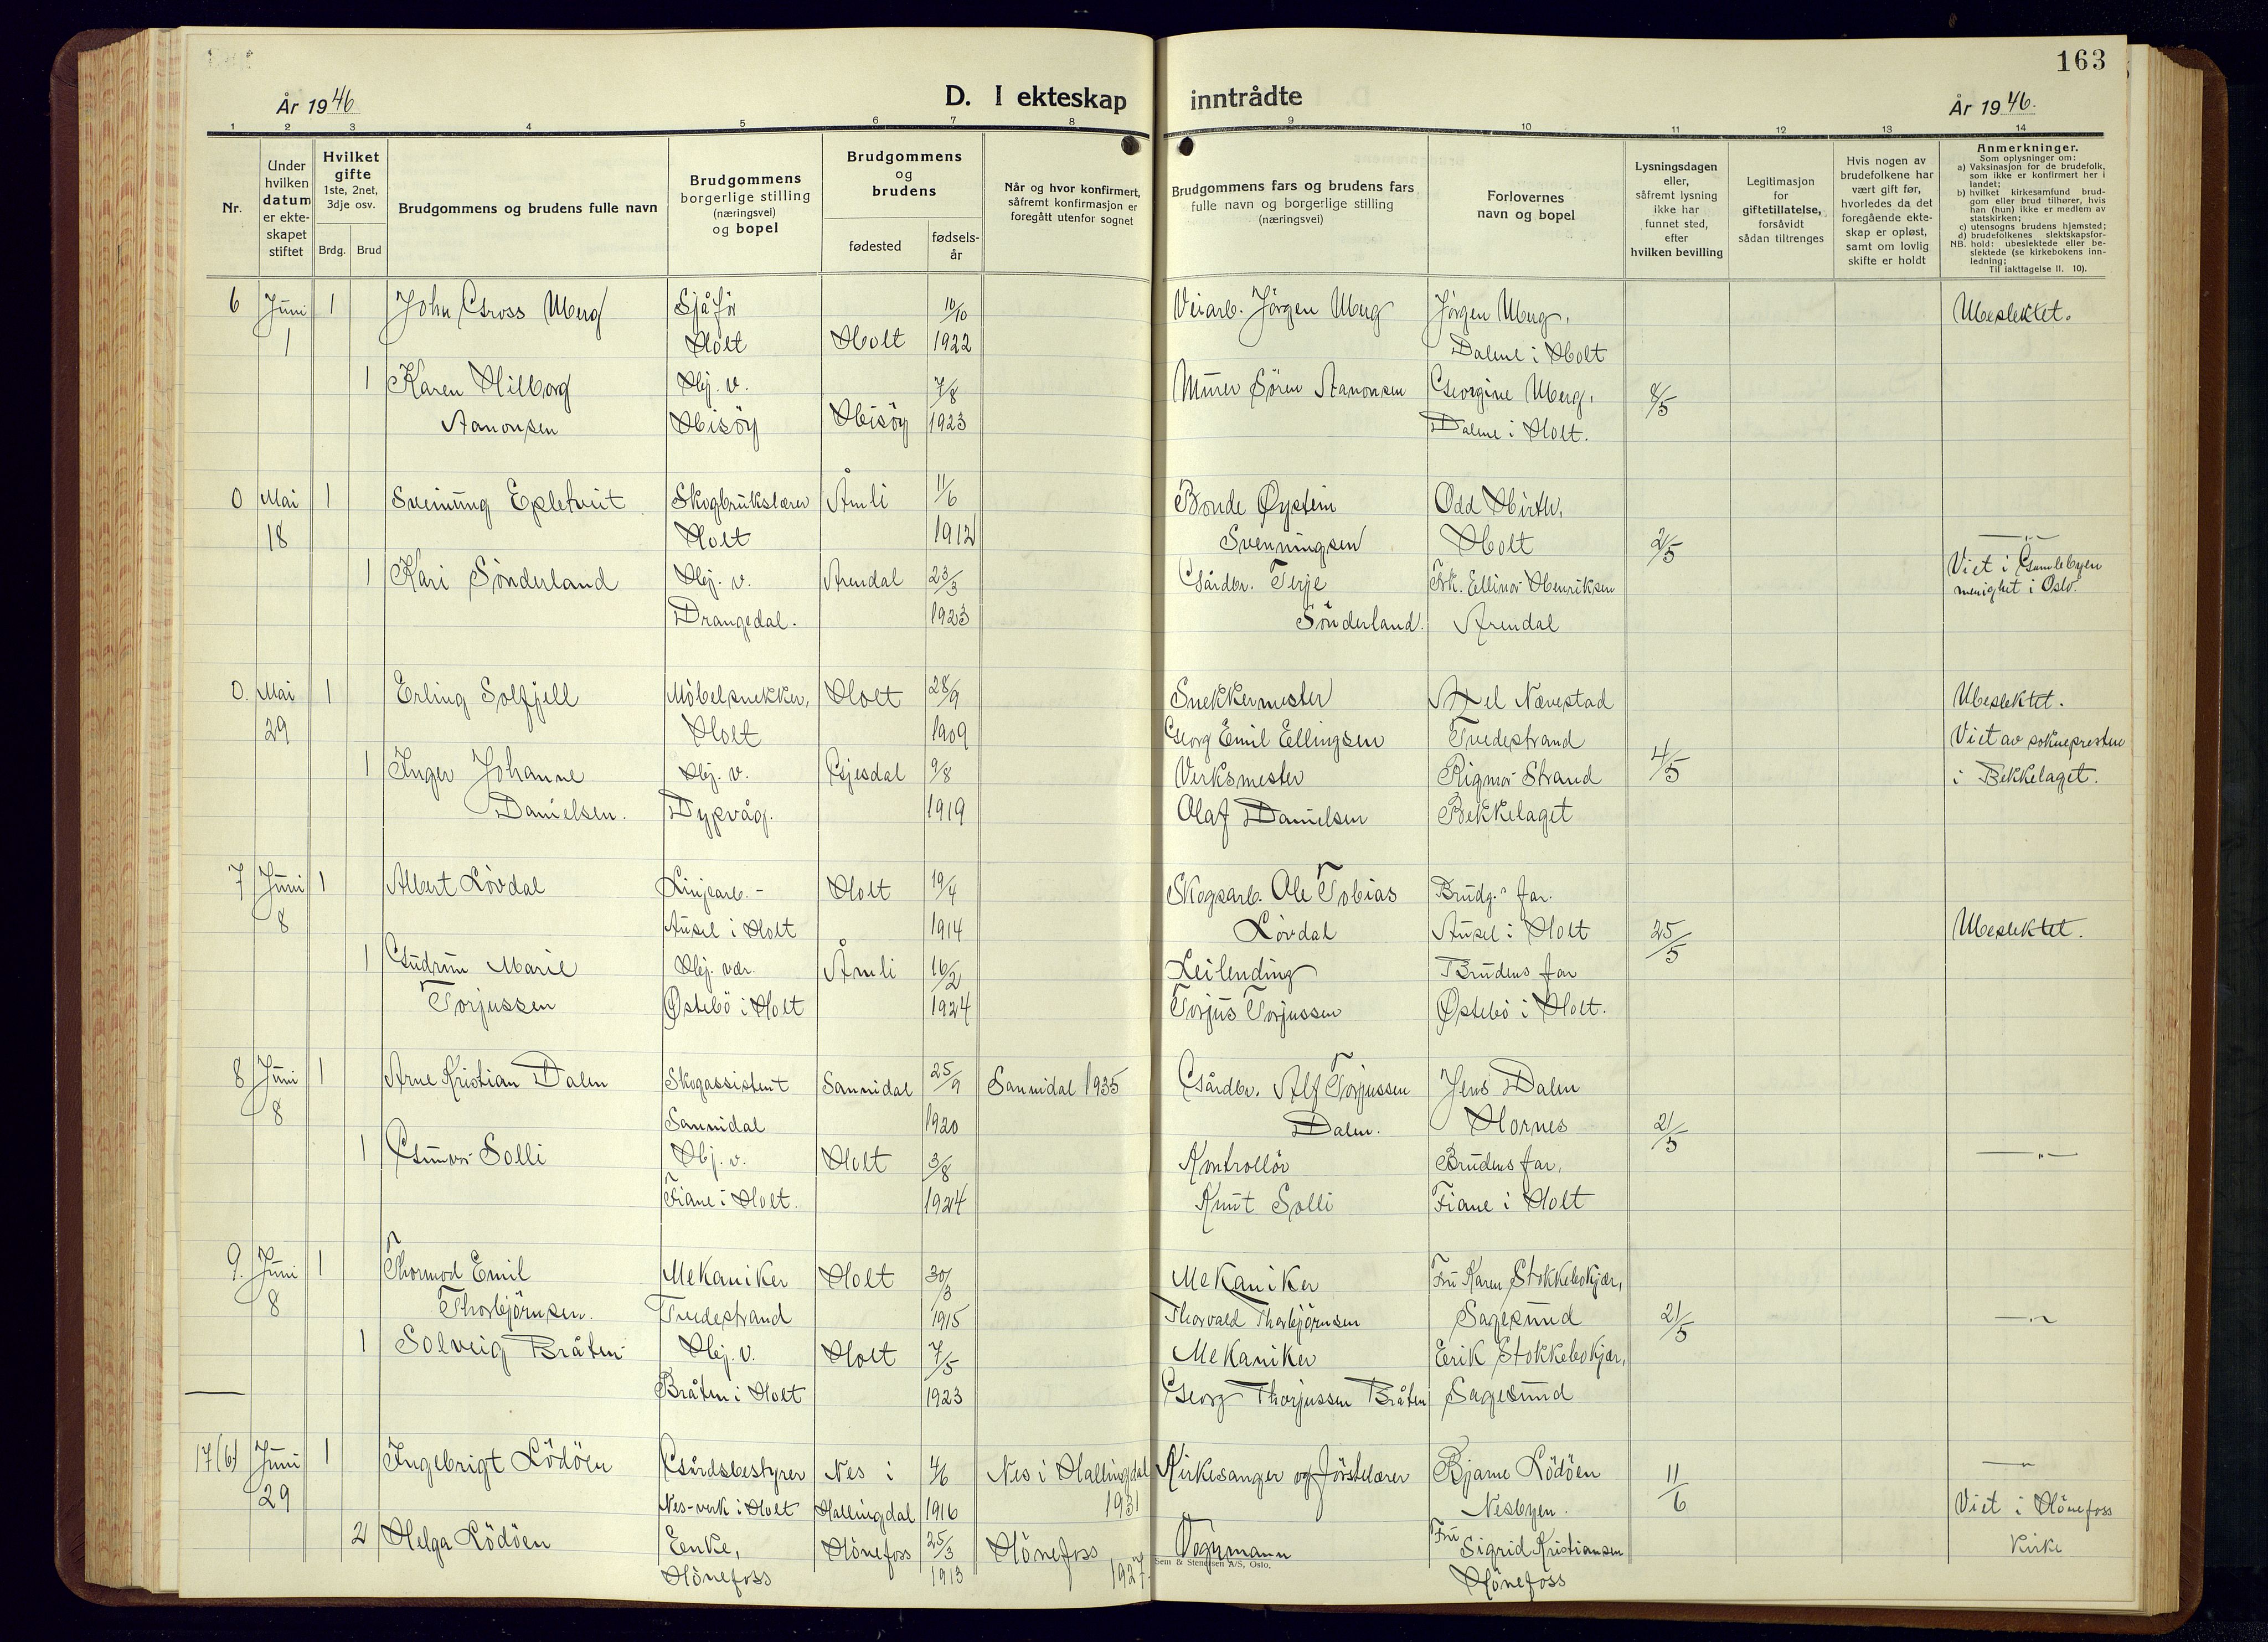 163
År 1946
D. I ekteskap inntrådte
År 1946.
1 2 3 4 5 6 7 8 9 10 11 12 13 14
Nr.
Under hvilken datum er ekteskapet stiftet
Hvilket gifte
1ste, 2net, 3dje osv.
Brdg. Brud
Brudgommens og brudens fulle navn
Brudgommens borgerlige stilling (næringsvei) og bopel
Brudgommens og brudens
fødested
fødselsår
Når og hvor konfirmert, såfremt konfirmasjon er foregått utenfor sognet
Brudgommens fars og brudens fars fulle navn og borgerlige stilling (næringsvei)
Forlovernes navn og bopel
Lysningsdagen eller, såfremt lysning ikke har funnet sted, efter hvilken bevilling
Legitimasjon for giftetillatelse, forsåvidt sådan tiltrenges
Hvis nogen av brudefolkene har vært gift før, hvorledes da det foregående ekteskap er opløst, samt om lovlig skifte er holdt
Anmerkninger.
Som oplysninger om:
a) Vaksinasjon for de brudefolk, som ikke er konfirmert her i landet;
b) hvilket kirkesamfund brudgom eller brud tilhører, hvis han (hun) ikke er medlem av statskirken;
c) utensogns brudens hjemsted;
d) brudefolkenes slektskapsforhold: ubeslektede eller beslektede (se kirkebokens innledning;
NB. Til iakttagelse II. 10).
6 Juni 1 John Gross Uberg Sjåfør 10/10 Veiarb. Jörgen Uberg Jörgen Uberg, Ubeslektet.
1 Holt Holt 1922 Dalene i Holt
1 Karen Hilborg Hj. v. 7/8 Murer Sören Aanonsen Georgine Uberg, 8/5
Aanonsen Hisöy Hisöy 1923 Dalene i Holt.
0 Mai 1 Sveinung Epletveit Skogbrukslærer Åmli 11/6 Bonde Øystein Odd Hirth,
18 Holt 1912 Svenningsen Holt 2/5 —"—
1 Kari Sönderland Hj. v. Arendal 23/3 Gårdbr. Terje Frk. Ellinor Henriksen Viet i Gamlebyen
Drangedal. 1923 Sönderland. Arendal menighet i Oslo.
0. Mai 1 Erling Solfjell Möbelsnekker, Holt 28/9 Snekkermester Axel Nævestad Ubeslektet.
29 Holt 1909 Georg Emil Ellingsen Tvedestrand Viet av soknepresten
1 Inger Johanne Hj. v. Gjesdal 9/8 Verksmester Rigmor Strand 4/5 i Bekkelaget.
Danielsen. Dypvåg. 1919 Olaf Danielsen Bekkelaget
7 Juni 1 Albert Lövdal Linjearb. - Holt 19/4 Skogsarb. Ole Tobias Brudg.s far.
8 Ausel i Holt 1914 Lövdal Ausel i Holt 25/5 Ubeslektet.
1 Gudrun Marie Hj. vær. Åmli 16/2 Leilending Brudens far
Torjussen Østebö i Holt 1924 Torjus Torjussen Østebö i Holt.
8 Juni 1 Arne Kristian Dalen Skogassistent Sannidal 25/9 Sannidal 1935 Gårdbr. Alf Torjussen Jens Dalen
8 Sannidal 1920 Dalen. Hornes 21/5
1 Gunvor Solli Hj. v. Holt 3/8 Kontrollör Brudens far, —"—
Fiane i Holt. 1924 Knut Solli Fiane i Holt
9. Juni 1 Thormod Emil Mekaniker Holt 30/3 Mekaniker Fru Karen Stokkebokjær,
8 Thorbjörnsen. Tvedestrand 1915 Thorvald Thorbjörnsen Sagesund 21/5 —"—
1 Solveig Bråten Hj. v. Holt 7/5 Mekaniker Eerik Stokkebokjær,
Bråten i Holt 1923 Georg Thorjussen Bråten Sagesund
17(6) Juni 1 Ingebrigt Lödöen Gårdsbestyrer Nes i 4/6 Nes i Hallingdal Kirkesanger og förstelærer Bjarne Lödöen 11/6 —"—
29 Nes-verk i Holt Hallingdal 1916 1931 Nesbyen. Viet i Hönefoss
2 Helga Lödöen Enke, Hönefoss 25/3 Hönefoss Vognmann Fru Sigrid Kristiansen Kirke
Hönefoss 1913 1927. Hönefoss
Sem & Stenersen A/S, Oslo.